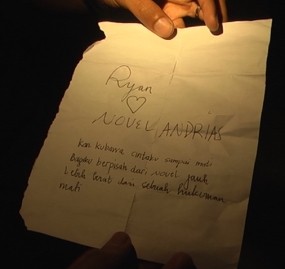 Ryan
♡
NOVEL ANDRIAS
Kan kubawa cintaku sampai mati
Bagiku berpisah dari novel jauh
Lebih berat dari sebuah hukuman
mati